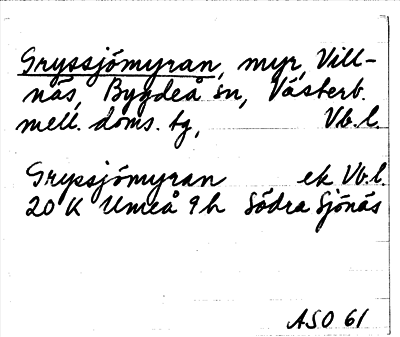 Gryssjömyran, myr, Vill-
näs, Bygdeå sn, Västerb.
mell. doms. tg, Vb.l.
Gryssjömyran ek Vb.l.
20 K Umeå 9h Södra Sjönäs
ASO 61